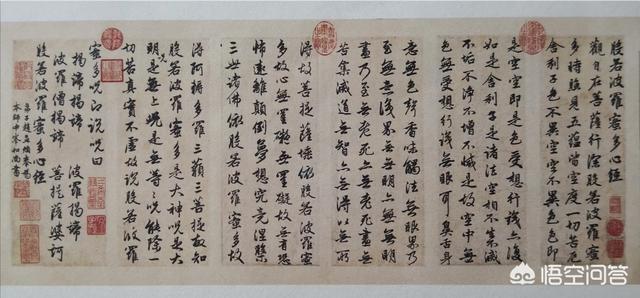 般若波羅蜜多心經
觀自在菩薩行深般若波羅蜜
多時照見五蘊皆空度一切苦厄
舍利子色不異空空不異色色即
是空空即是色受想行識亦復
如是舍利子是諸法空相不生不滅
不垢不淨不增不減是故空中無
色無受想行識無眼耳鼻舌身
意無色聲香味觸法無眼界乃
至無意識界無無明亦無無明
盡乃至無老死亦無老死盡無
苦集滅道無智亦無得以無所
得故菩提薩埵依般若波羅蜜
多故心無罣礙無罣礙故無有恐
怖遠離顛倒夢想究竟涅槃
三世諸佛依般若波羅蜜多故
得阿耨多羅三藐三菩提故知
般若波羅蜜多是大神呪是大
明呪是無上呪是無等等呪能除一
切苦真實不虛故說般若波羅
蜜多呪即說呪曰
揭諦揭諦 波羅揭諦
波羅僧揭諦 菩提薩婆訶
般若波羅蜜多心經
弟子趙孟頫奉為
本師中峯和尚書
悟空问答